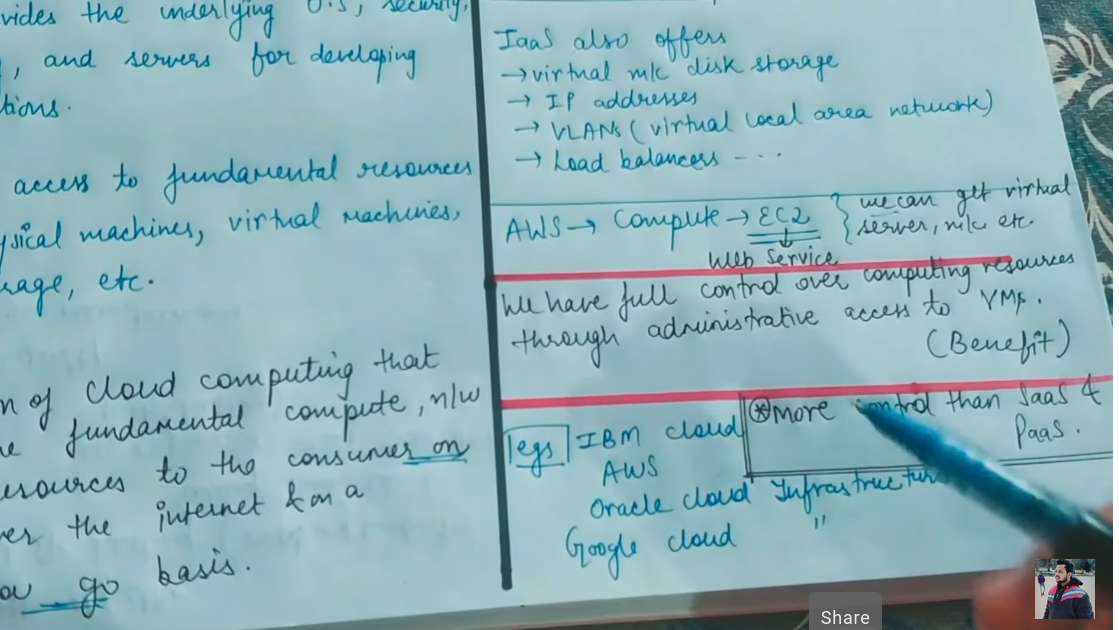 vides the underlying O.S, security,
, and servers for developing
tions.
access to fundamental resources
ysical machines, virtual machines,
rage, etc.
n of cloud computing that
fundamental compute, n/w
esources to the consumer on
er the internet & on a
go basis.
IaaS also offers
→ virtual m/c disk storage
→ IP addresses
→ VLANs (virtual local area network)
→ Load balancers - . . .
AWS → Compute → EC2 } we can get virtual
server, m/c etc.
Web Service
We have full control over computing resources
through administrative access to VMs.
(Benefit)
* more control than SaaS &
PaaS.
egs IBM cloud
AWS
Oracle cloud Infrastructur
Google cloud "
Share